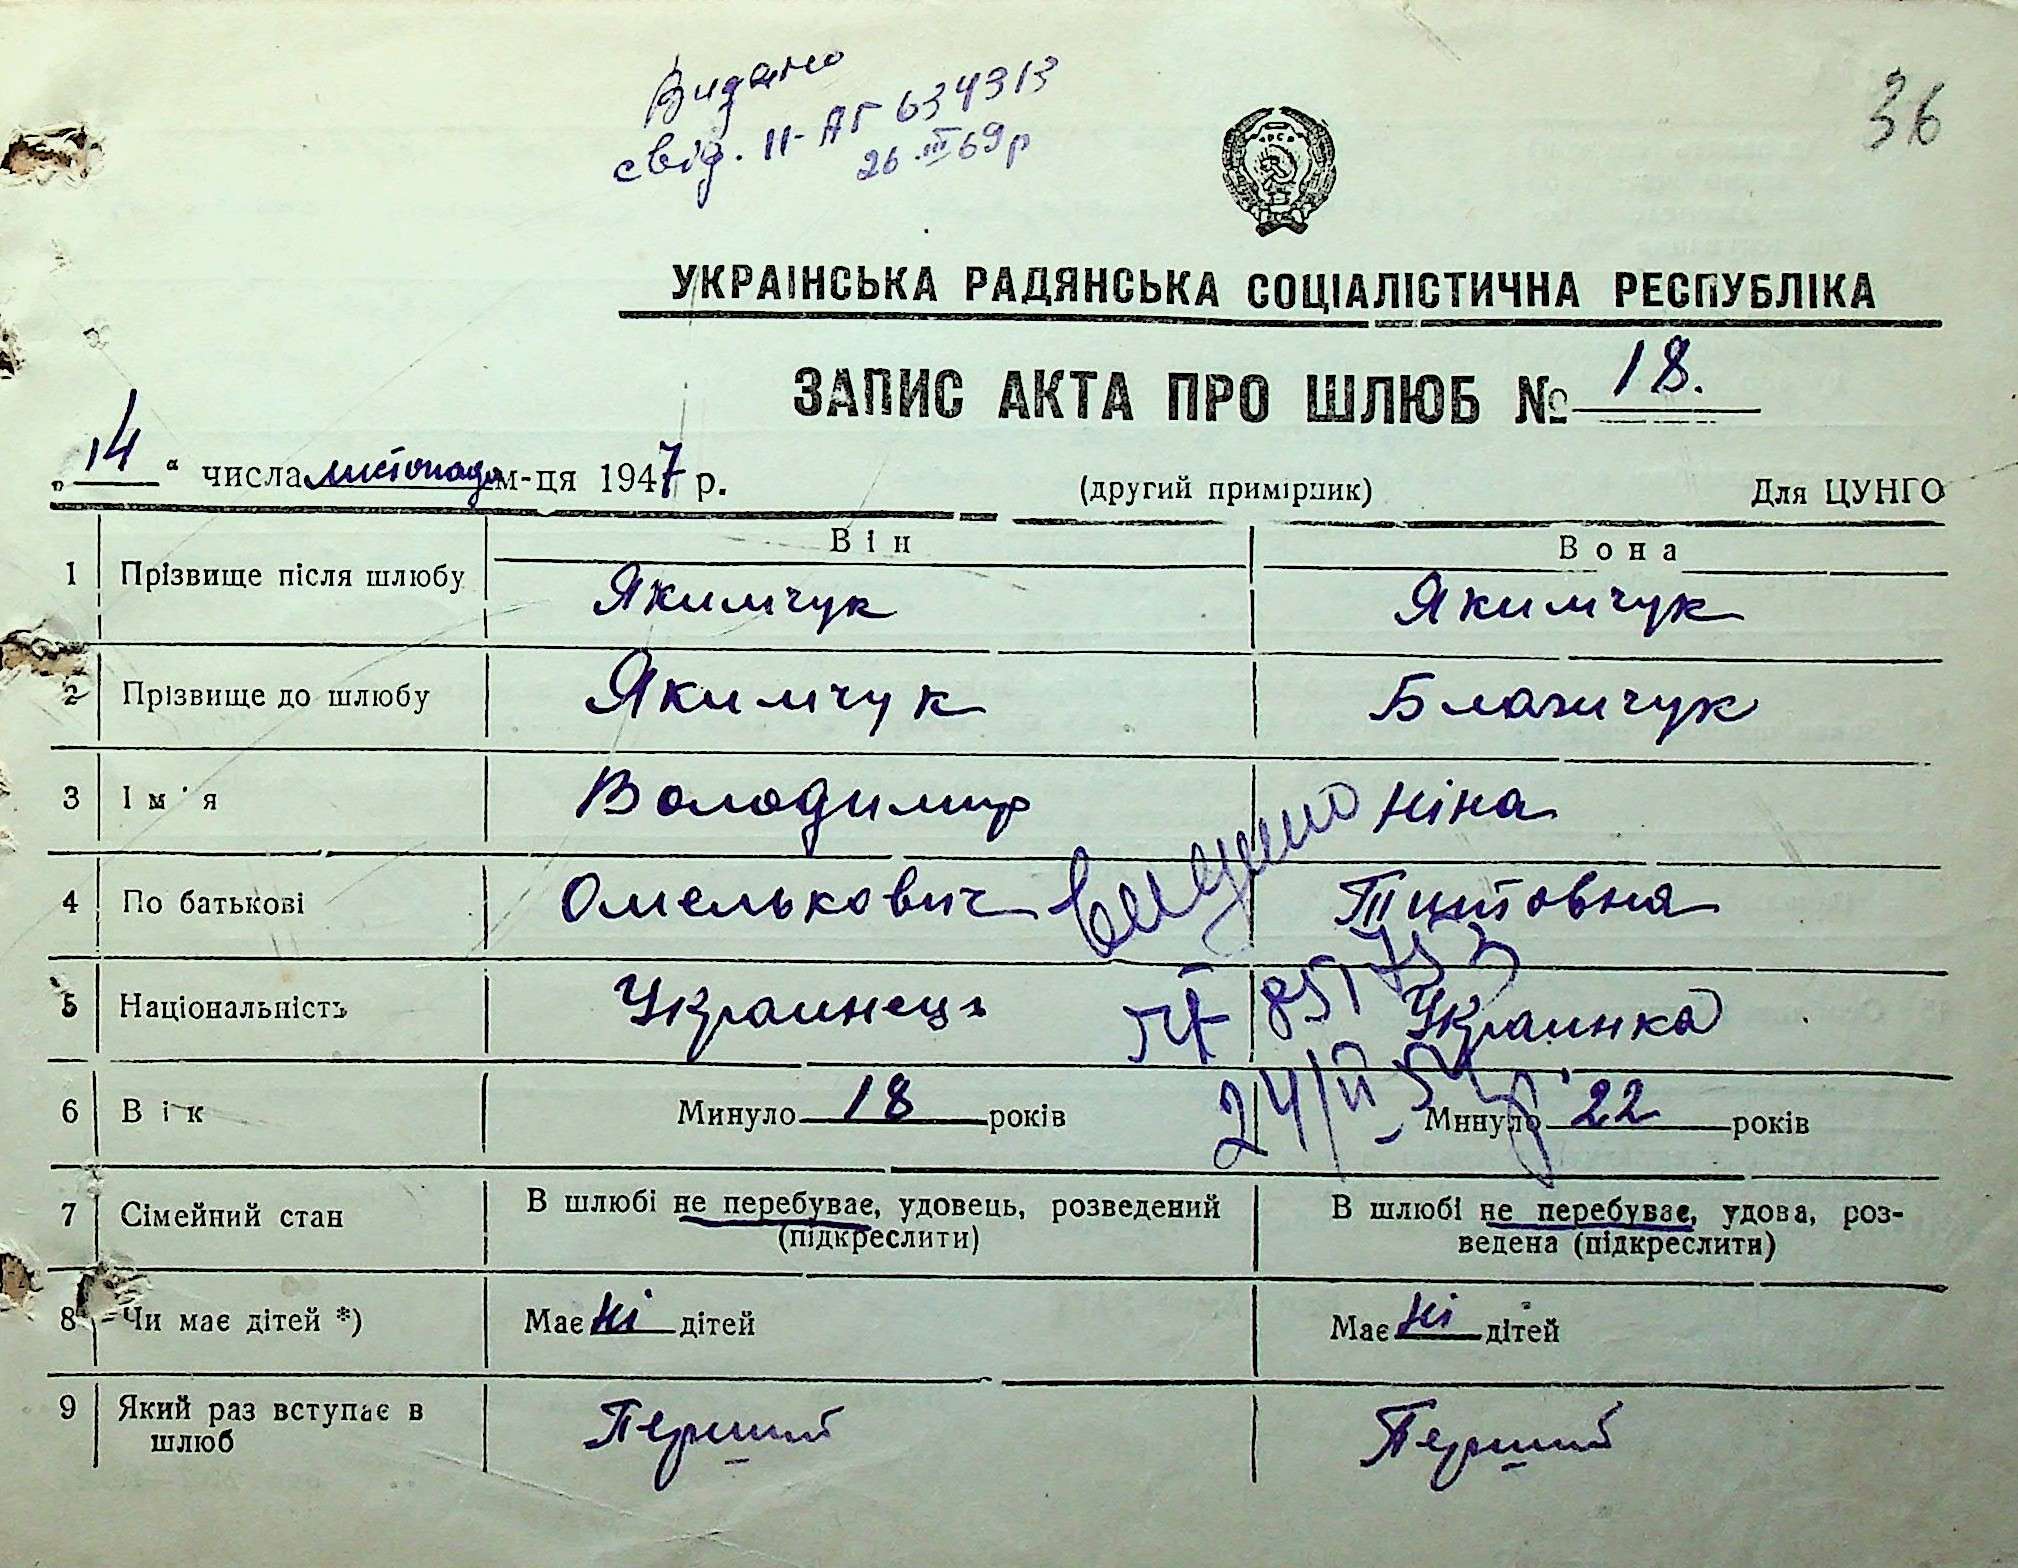 36
Видано
свід. II-АГ 634313
26.III 69р
УКРАІНСЬКА РАДЯНСЬКА СОЦІАЛІСТИЧНА РЕСПУБЛІКА
ЗАПИС АКТА ПРО ШЛЮБ № 18.
„14“ числа листопада м-ця 1947 р. (другий примірник) Для ЦУНГО
Він Вона
1 Прізвище після шлюбу Якимчук Якимчук
2 Прізвище до шлюбу Якимчук Блажчук
3 Ім'я Володимир Ніна
4 По батькові Омелькович Титовна
видано
5 Національність Украинець Украинка
6 Вік Минуло 18 років Минуло 22 років
24/II-
7 Сімейний стан В шлюбі не перебуває, удовець, розведений (підкреслити) В шлюбі не перебуває, удова, роз-
ведена (підкреслити)
8 Чи має дітей *) Має ні дітей Має ні дітей
9 Який раз вступає в Перший Перший
шлюб